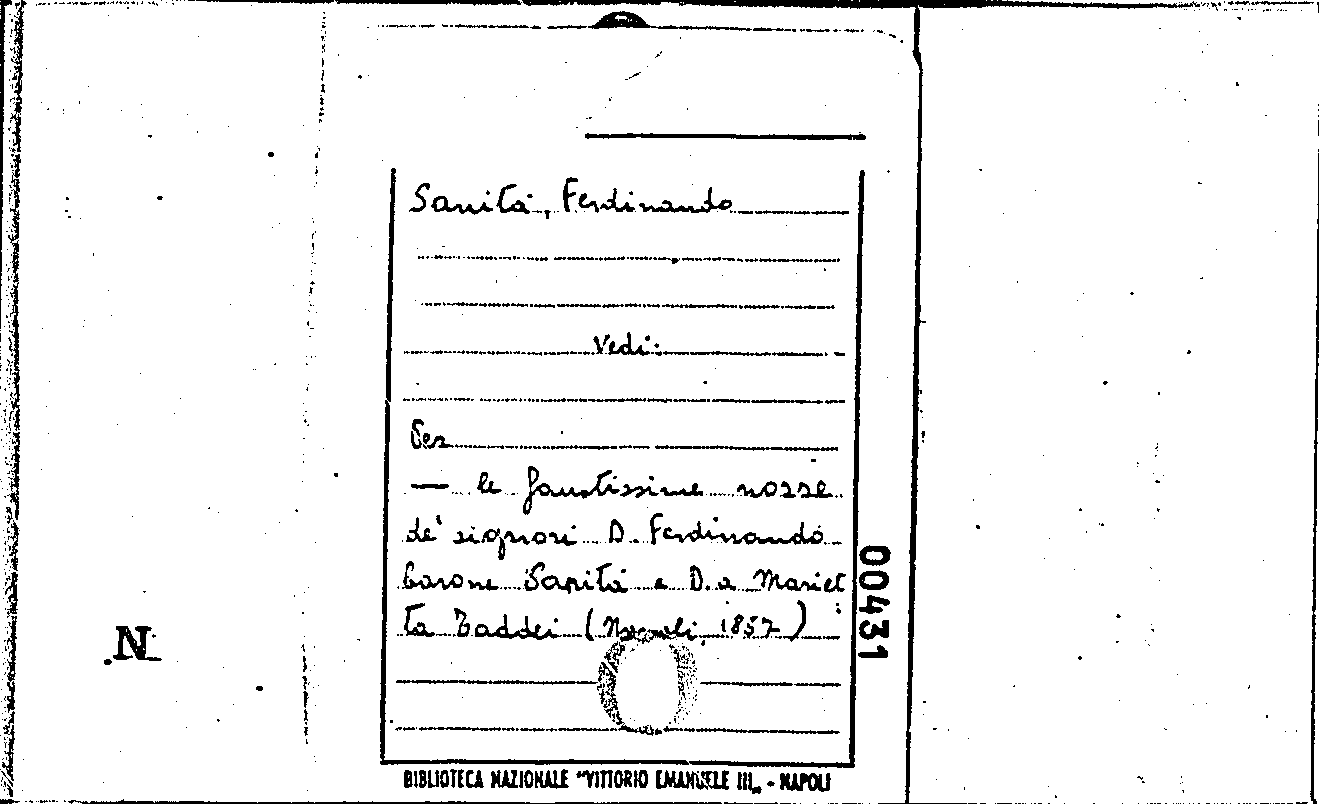 Sanità, Ferdinando
Vedi:
Per
— le faustissime nozze
de' signori D. Ferdinando
barone Sanità e D.a Mariet
ta Taddei (Napoli, 1857)
00431
N
BIBLIOTECA NAZIONALE "VITTORIO EMANUELE III„ - NAPOLI